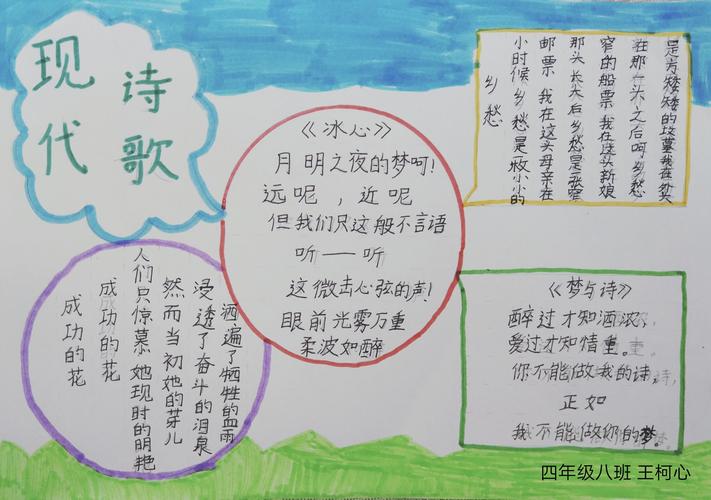 现代
诗歌
《冰心》
月明之夜的梦呵!
远呢，近呢
但我们只这般不言语
听——听
这微击心弦的声!
眼前光雾万重
柔波如醉
乡愁
小时候 乡愁是一枚小小的
邮票 我在这头母亲在
那头 长大后 乡愁是一张窄
窄的船票 我在这头新娘
在那一头 之后呵乡愁
是方矮矮的坟墓我在外头
成功的花
成功的花
人们只惊慕她现时的明艳
然而当初她的芽儿
浸透了奋斗的泪泉
洒遍了牺牲的血雨
《梦与诗》
醉过才知酒浓，
爱过才知情重。
你不能做我的诗，
正如
我不能做你的梦。
四年级八班 王柯心